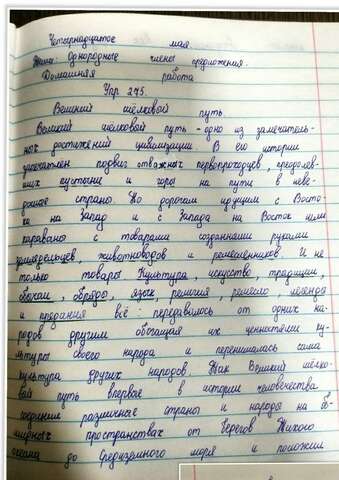 Четырнадцатое мая
Тема: Однородные члены предложения.
Домашняя работа
Упр 275.
Великий шёлковый путь
Великий шёлковый путь - одно из замечатель-
ных достижений цивилизации. В его истории
запечатлен подвиг отважных первопроходцев, преодолев-
ших пустыне и горы на пути в неве-
домые страно. По дорогам идущим с Восто-
ка на Запад и с Запада на Восток шли
каравано с товарами созданными руками
земледельцев, животноводов и ремесленников. И не
только товары Культура, искусство, традиции,
обычаи, обрядо, язык, религия, ремесло, легенда
и предания всё: передавалось от одних на-
родов другим обогащая их ценностями ку-
льтуры своего народа и перенималась сама
культура других народов. Так Великий шёлко-
вой путь впервые в истории человечества
соединил различные страны и народы на
мирных пространствах от берегов Тихого
океана до Средиземного моря и положил